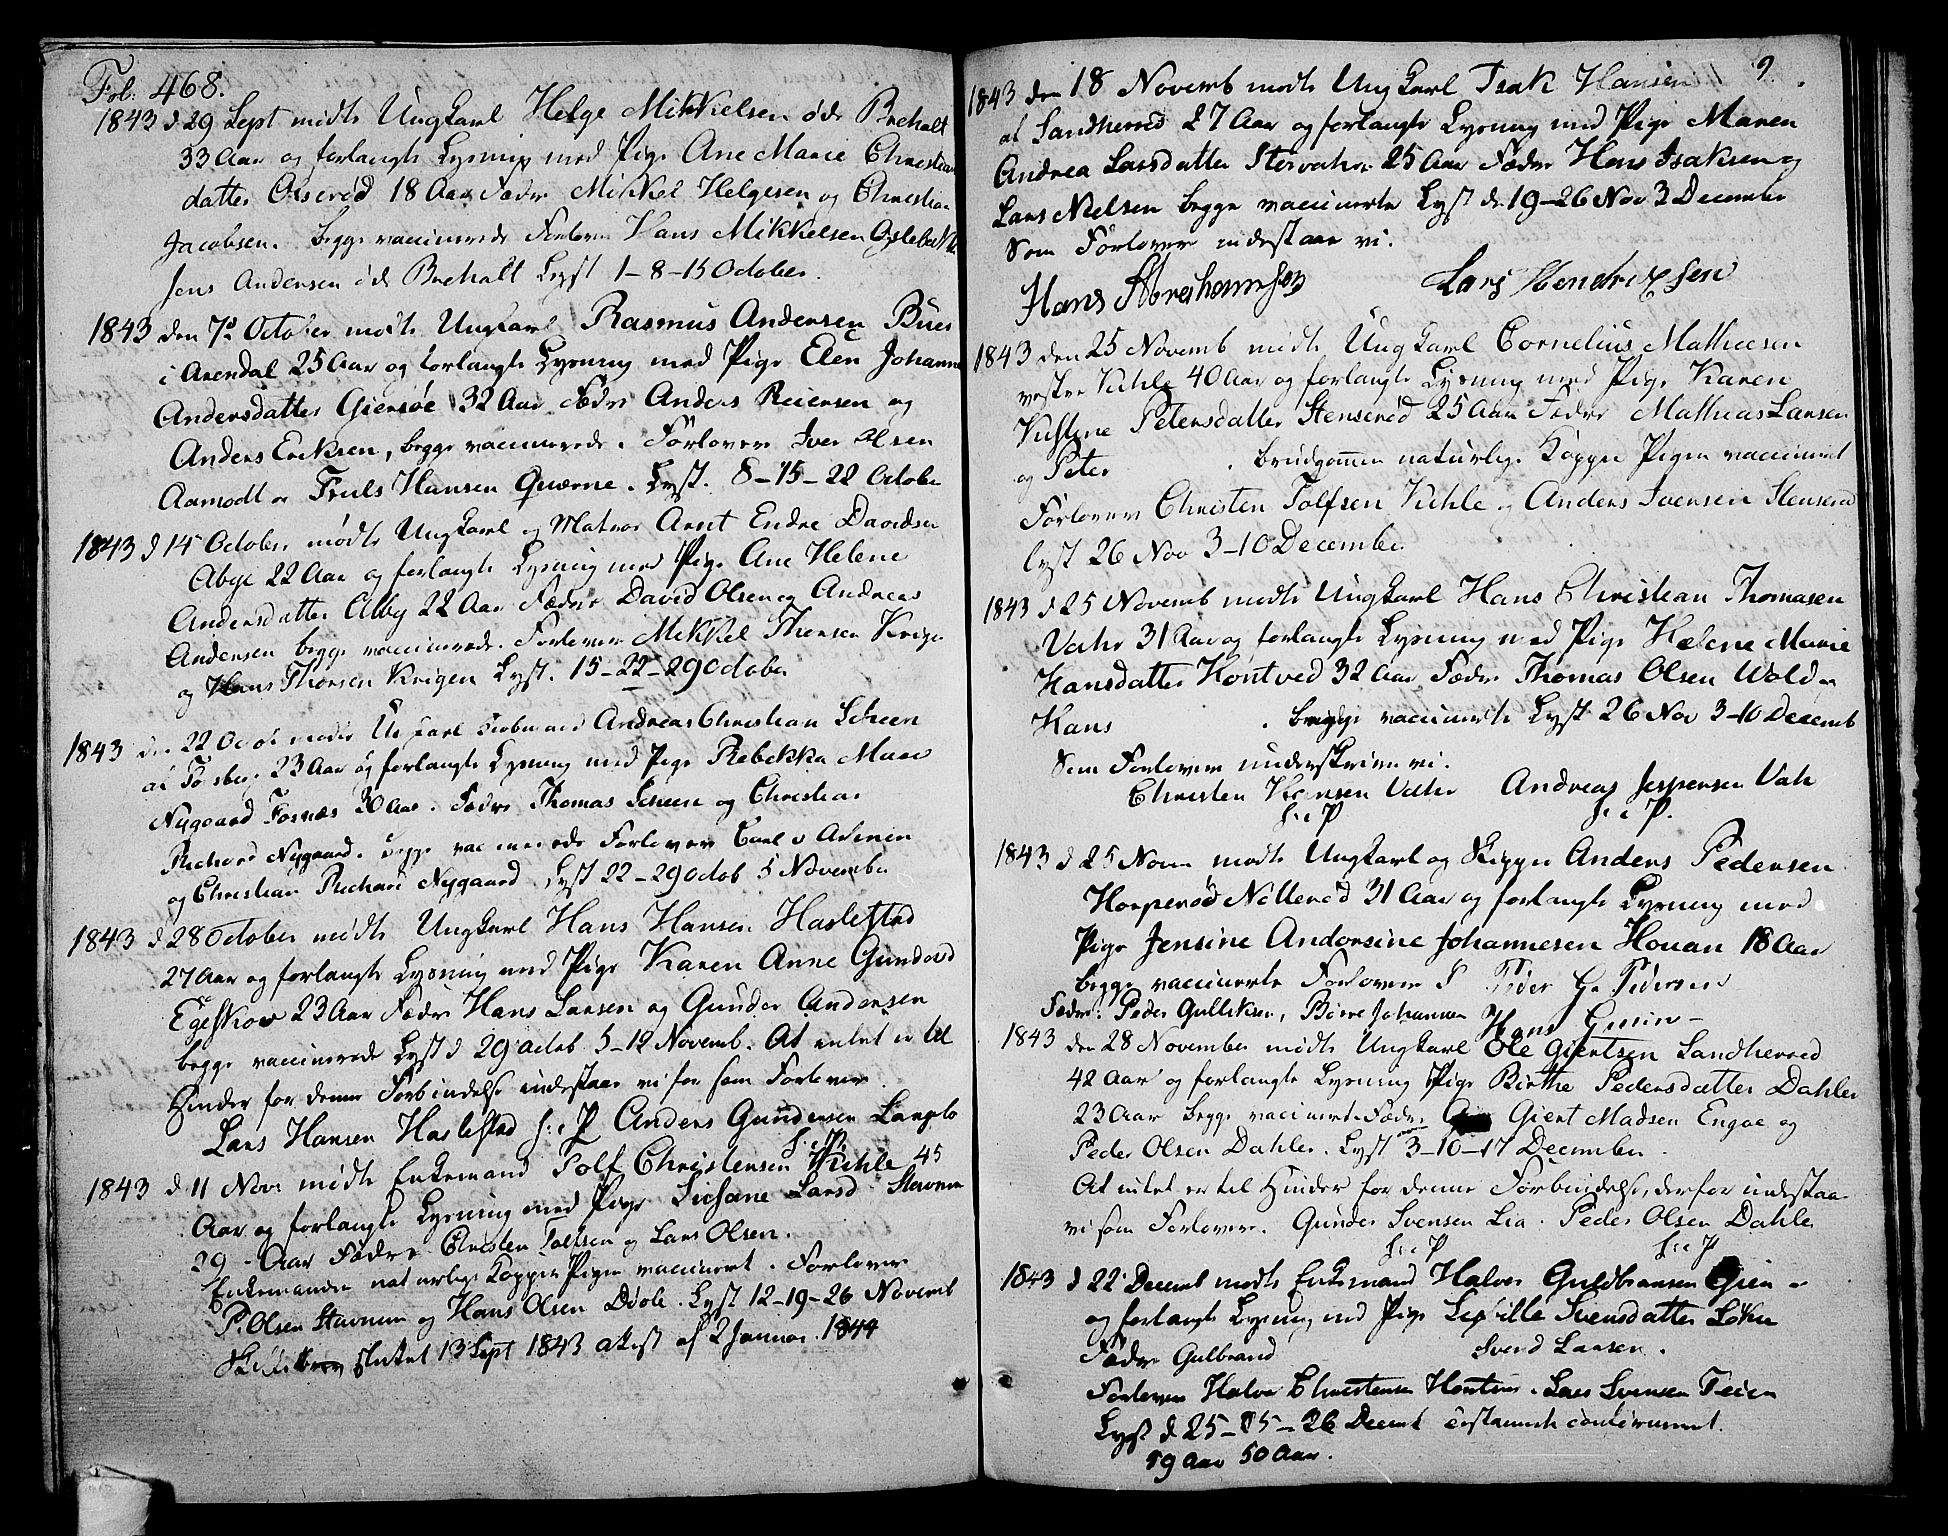 Fol: 468.
1843 d 29 Sept mødte Ungkarl Helge Mikkelsen øde Brehalt
33 Aar og forlangte Lysning med Pige Ane Marie Christian
datter Olserød 18 Aar Fædre Mikkel Helgesen og Christian
Jacobsen. begge vaccinerede Forlover Hans Mikkelsen
Jens Andersen øde Brehalt Lyst 1-8-15 October.
1843 den 7d October mødte Ungkarl Rasmus Andersen Bues
i Arendal 25 Aar og forlangte Lysning med Pige Elen Johanne
Andersdatter Giersøe 32 Aar Fædre Anders Reiersen og
Anders Ericksen, begge vaccinerede. Forlover Iver Olsen
Aamodt og Truls Hansen Quærne. Lyst. 8-15-22 Octobe
1843 d 14 October mødte Ungkarl og Matros Arnt Endre Davidsen
Abye 22 Aar og forlangte Lysning med Pige Ane Helene
Andersdatter Alby 22 Aar Fædre David Olsen og Andreas
Andersen begge vaccinerede. Forlover Mikkel Thorsen Krigen
og Hans Thorsen Krigen Lyst. 15-22-29 October
1843 den 22 Octob mødte Ungkarl Andreas Christian Scheen
af Tønsberg 23 Aar og forlangte Lysning med Pige Rebekka Marie
Nygaard Fosnæs 30 Aar. Fædre Thomas Scheen og Christian
Richard Nygaard. begge vaccinerede Forlover Carl v
og Christian Richard Nygaard Lyst 22-29 Octob 5 November
1843 d 28 October mødte Ungkarl Hans Hansen Haslestad
27 Aar og forlangte Lysning med Pige Karen Anne Gundersd
Egeskov 23 Aar Fædre Hans Larsen og Gunder Andersen
begge vaccinerede Lyst d 29 Octob 5-12 Novemb. At intet er til
Hinder for denne Forbindelse indestaae vi for som Forlover
Lars Hansen Haslestad h: i P Anders Gundersen Langlo
h: i P.
1843 d 11 Nov mødte Enkemand Tolf Christensen Kihle 45
Aar og forlangte Lysning med Pige Larsd Stavnum
29 - Aar Fædre Christen Tolfsen og Lars Olsen.
Enkemanden naturlige Kopper Pigen vaccineret. Forlover
P. Olsen Stavnum og Hans Olsen Døvle. Lyst 12-19-26 Novemb
Skiftebrev sluttet 13 Sept 1843 af 2 Januar. 1844
9
1843 den 18 Novemb mødte Ungkarl Isak Hansen
af Sandherred 27 Aar og forlangte Lysning med Pige Maren
Andrea Larsdatter Storvahr 25 Aar Fædre Hans Isaksen og
Lars Nielsen begge vaccinerte Lyst d 19-26 Nov 3 December
Som Forlover indestaae vi.
Hans Abrahamsen Lars Hendrixsen
1843 den 25 Novemb mødte Ungkarl Cornelius Mathiesen
vestre Kihle 40 Aar og forlangte Lysning med Pige Karen
Kistine Petersdatter Stenserød 25 Aar Fædre Mathias Larsen
og Peter . Brudgommen naturlige Kopper Pigen vaccineret
Forlover Christen Tolfsen Kihle og Anders Iversen Stenserød
lyst 26 Nov 3-10 December
1843 d 25 Novemb mødte Ungkarl Hans Christian Thomasen
Vahr 31 Aar og forlangte Lysning med Pige Helene Marie
Hansdatter Hontved 32 Aar Fædre Thomas Olsen Wold og
Hans . begge vaccinerte Lyst 26 Nov 3-10 Decemb
Som Forlover underskriver vi.
Christen Hansen Vahr Andreas Jespersen Vah
h: i P h: i P.
1843 d 25 Novem mødte Ungkarl og Skipper Anders Pedersen
Horperød Nøtterød 31 Aar og forlangte Lysning med
Pige Jensine Andorsine Johannesen Houan 18 Aar
begge vaccinerte Forlover
Fædre. Peder Gulliksen, Børre Johannsen Hans
1843 den 28 November mødte Ungkarl Ole Giertsen Sandherred
42 Aar og forlangte Lysning Pige Birthe Pedersdatter Dahler
23 Aar begge vaccinerte Fædre Giert Madsen Engae og
Peder Olsen Dahler. Lyst 3-10-17 December.
At intet er til Hinder for denne Forbindelse, derfor indestaae
vi som Forlover. Gunder Svensen Lia. Peder Olsen Dahle
h: i P h: i P
1843 d 22 Decemb mødte Enkemand Halvor Guldbransen Grien
og forlangte Lysning med Pige Svensdatter Løken
Fædre Gulbrand Svend Larsen.
Forlover Halvor Christensen Hontvet. Lars Svensen Feien
Lyst d 25-25-26 Decemb
59 Aar 50 Aar.